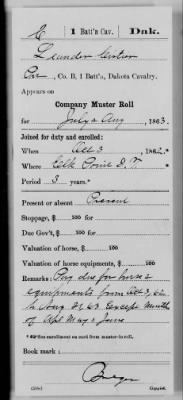 E | 1 Batt'n Cav. | Dak.
Leander
Co. B, 1 Batt'n, Dakota Cavalry.
Appears on
Company Muster Roll
for July & Aug, 1863.
Joined for duty and enrolled:
When Oct 3, 1862.*
Where Elk Point D.T.
Period 3 years.*
Present or absent Present
Stoppage, $ 100 for
Due Gov't, $ 100 for
Valuation of horse, $ 100
Valuation of horse equipments, $ 100
Remarks: Pay due for horse &
equipments from Oct 3, 62
to Aug 31 63 Except month
of Apl May & June
Book mark:
Copyist.